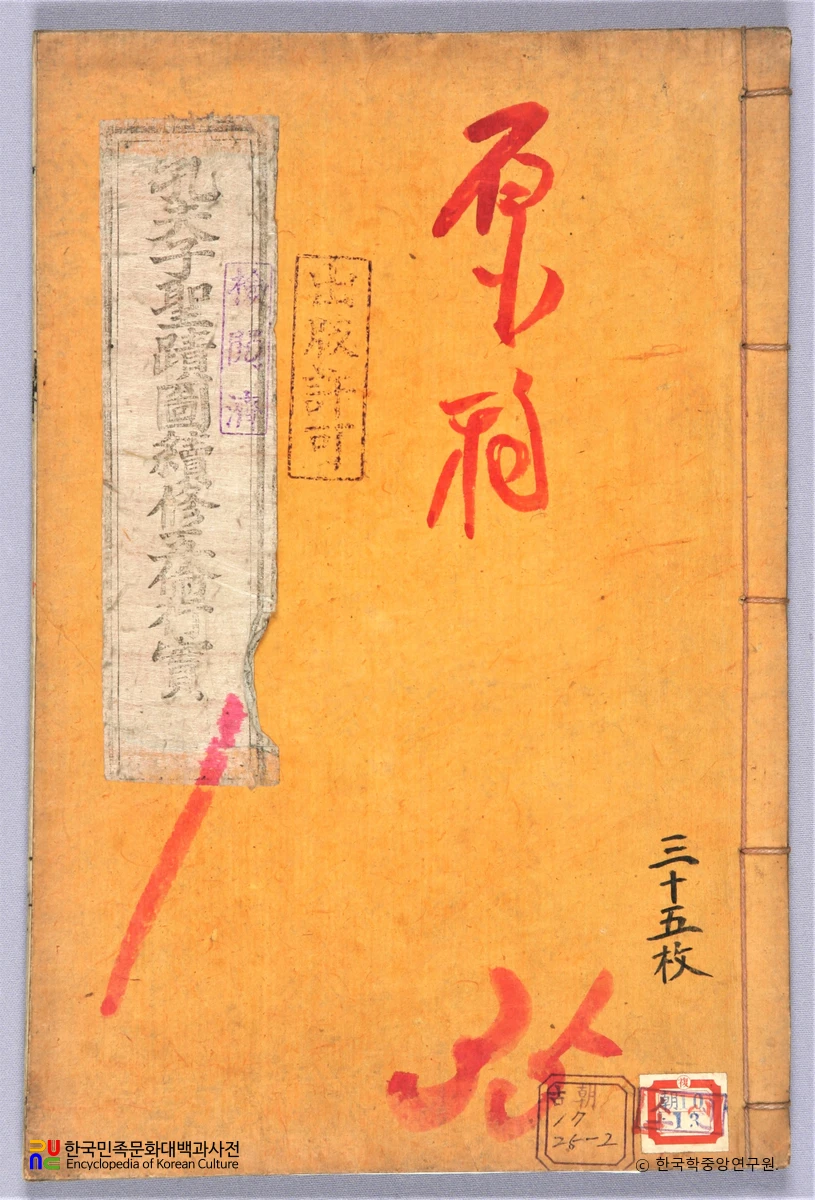 原稿
三十五枚
出版許可
檢閱濟
孔夫子聖蹟圖續修五倫行實
朝
古
17
28-2
複
한국민족문화대백과사전
Encyclopedia of Korean Culture
© 한국학중앙연구원